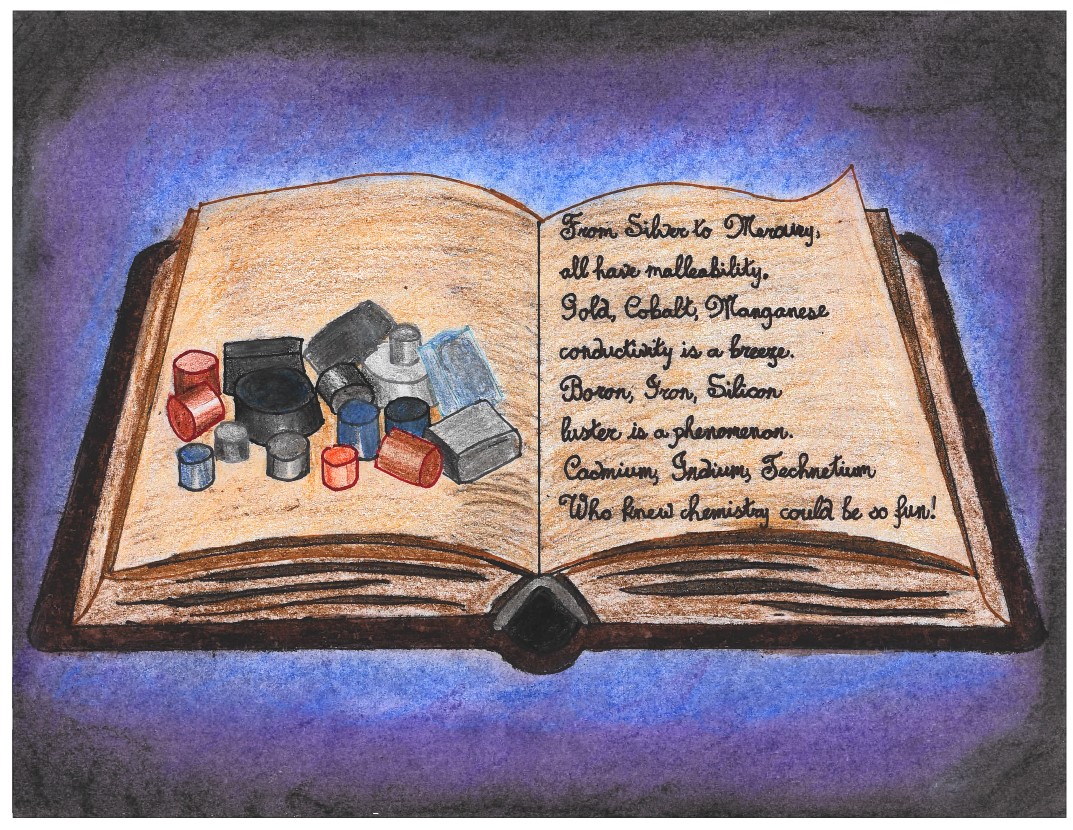 From Silver to Mercury,
all have malleability.
Gold, Cobalt, Manganese
conductivity is a breeze.
Boron, Iron, Silicon
luster is a phenomenon.
Cadmium, Indium, Technetium
Who knew chemistry could be so fun!